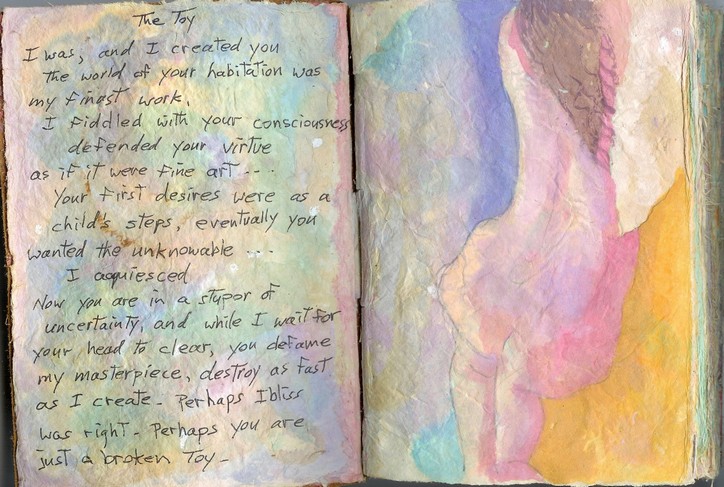 The Toy
I was, and I created you
the world of your habitation was
my finest work.
I fiddled with your consciousness
defended your virtue
as if it were fine art ----
Your first desires were as a
child's steps, eventually you
wanted the unknowable ---
I aquiesced
Now you are in a stupor of
uncertainty, and while I wait for
your head to clear, you defame
my masterpiece, destroy as fast
as I create - Perhaps Ibliss
was right - Perhaps you are
just a broken Toy -